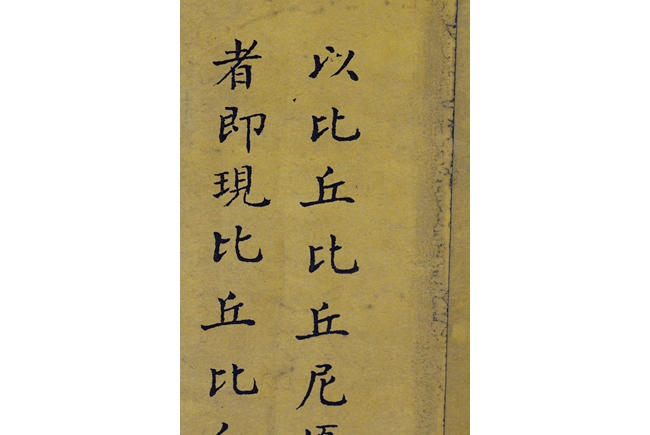 以比丘比丘尼
者即現比丘比